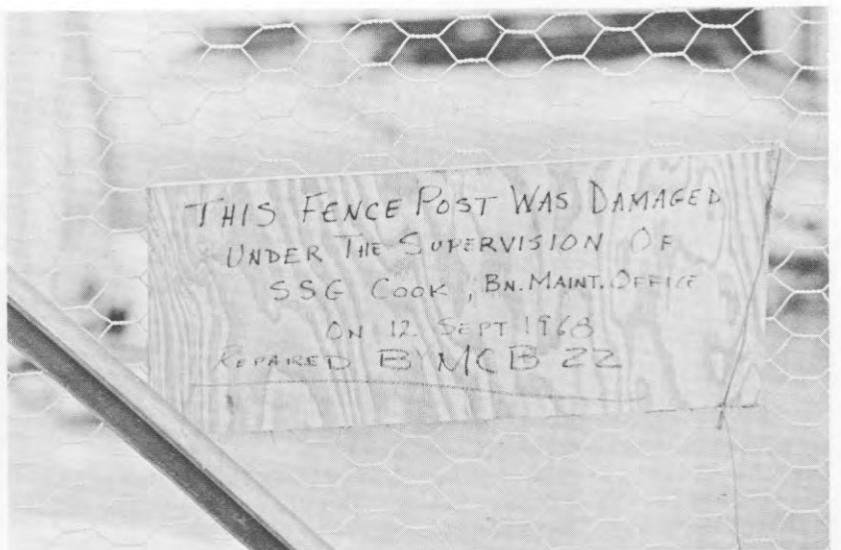 THIS FENCE POST WAS DAMAGED
UNDER THE SUPERVISION OF
SSG COOK, BN. MAINT. OFFICE
ON 12 SEPT 1968
REPAIRED BY MCB 22